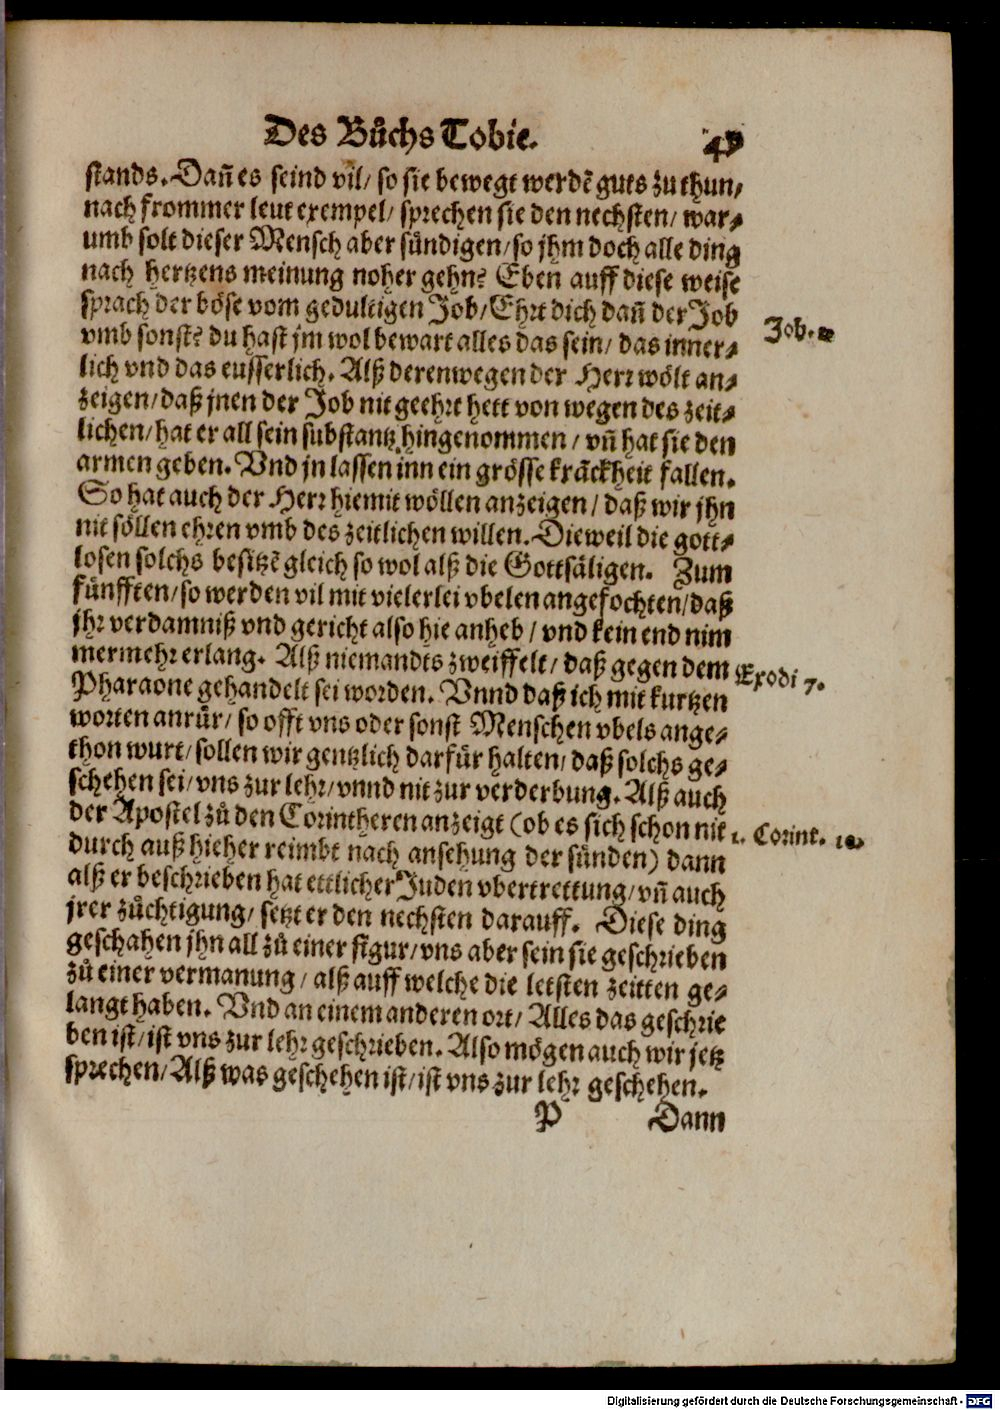 Des Bůchs Tobie.
stands. Dañ es seind vil/ so sie bewegt werdẽ guts zu thun/
nach frommer leut exempel/ sprechen sie den nechsten/ war⸗
umb solt dieser Mensch aber sündigen/ so jhm doch alle ding
nach hertzens meinung noher gehn? Eben auff diese weise
sprach der böse vom gedultigen Job/ Ehrt dich dañ der Job
vmb sonst? du hast jm wol bewart alles das sein/ das inner⸗
lich vnd das eusserlich. Alß derenwegen der Herr wölt an⸗
zeigen/ daß jnen der Job nit geehrt hett von wegen des zeit⸗
lichen/ hat er all sein substantz hingenommen/ vñ hat sie den
armen geben. Vnd jn lassen inn ein grösse krãckheit fallen.
So hat auch der Herr hiemit wöllen anzeigen/ daß wir jhn
nit söllen ehren vmb des zeitlichen willen. Dieweil die gott⸗
losen solchs besitzẽ gleich so wol alß die Gottsäligen. Zum
fünfften/ so werden vil mit vielerlei vbelen angefochten/ daß
jhr verdamniß vnd gericht also hie anheb/ vnd kein end nim
mermehr erlang. Alß niemandts zweiffelt/ daß gegen dem
Pharaone gehandelt sei worden. Vnnd daß ich mit kurtzen
worten anrür/ so offt vns oder sonst Menschen vbels ange⸗
thon wurt/ sollen wir gentzlich darfür halten/ daß solchs ge⸗
schehen sei/ vns zur lehr/ vnnd nit zur verderbung. Alß auch
der Apostel zů den Corintheren anzeigt (ob es sich schon nit
durch auß hieher reimbt nach ansehung der sünden) dann
alß er beschrieben hat ettlicher Juden vbertrettung/ vñ auch
jrer zůchtigung/ setzt er den nechsten darauff. Diese ding
geschahen jhn all zů einer figur/ vns aber sein sie geschrieben
zů einer vermanung/ alß auff welche die letsten zeitten ge⸗
langt haben. Vnd an einem anderen ort/ Alles das geschrie
ben ist/ ist vns zur lehr geschrieben. Also mögen auch wir jetz
sprechen/ Alß was geschehen ist/ ist vns zur lehr geschehen.
P Dann
Job.
Exodi 7.
1. Corint. 10.
Digitalisierung gefördert durch die Deutsche Forschungsgemeinschaft - DFG